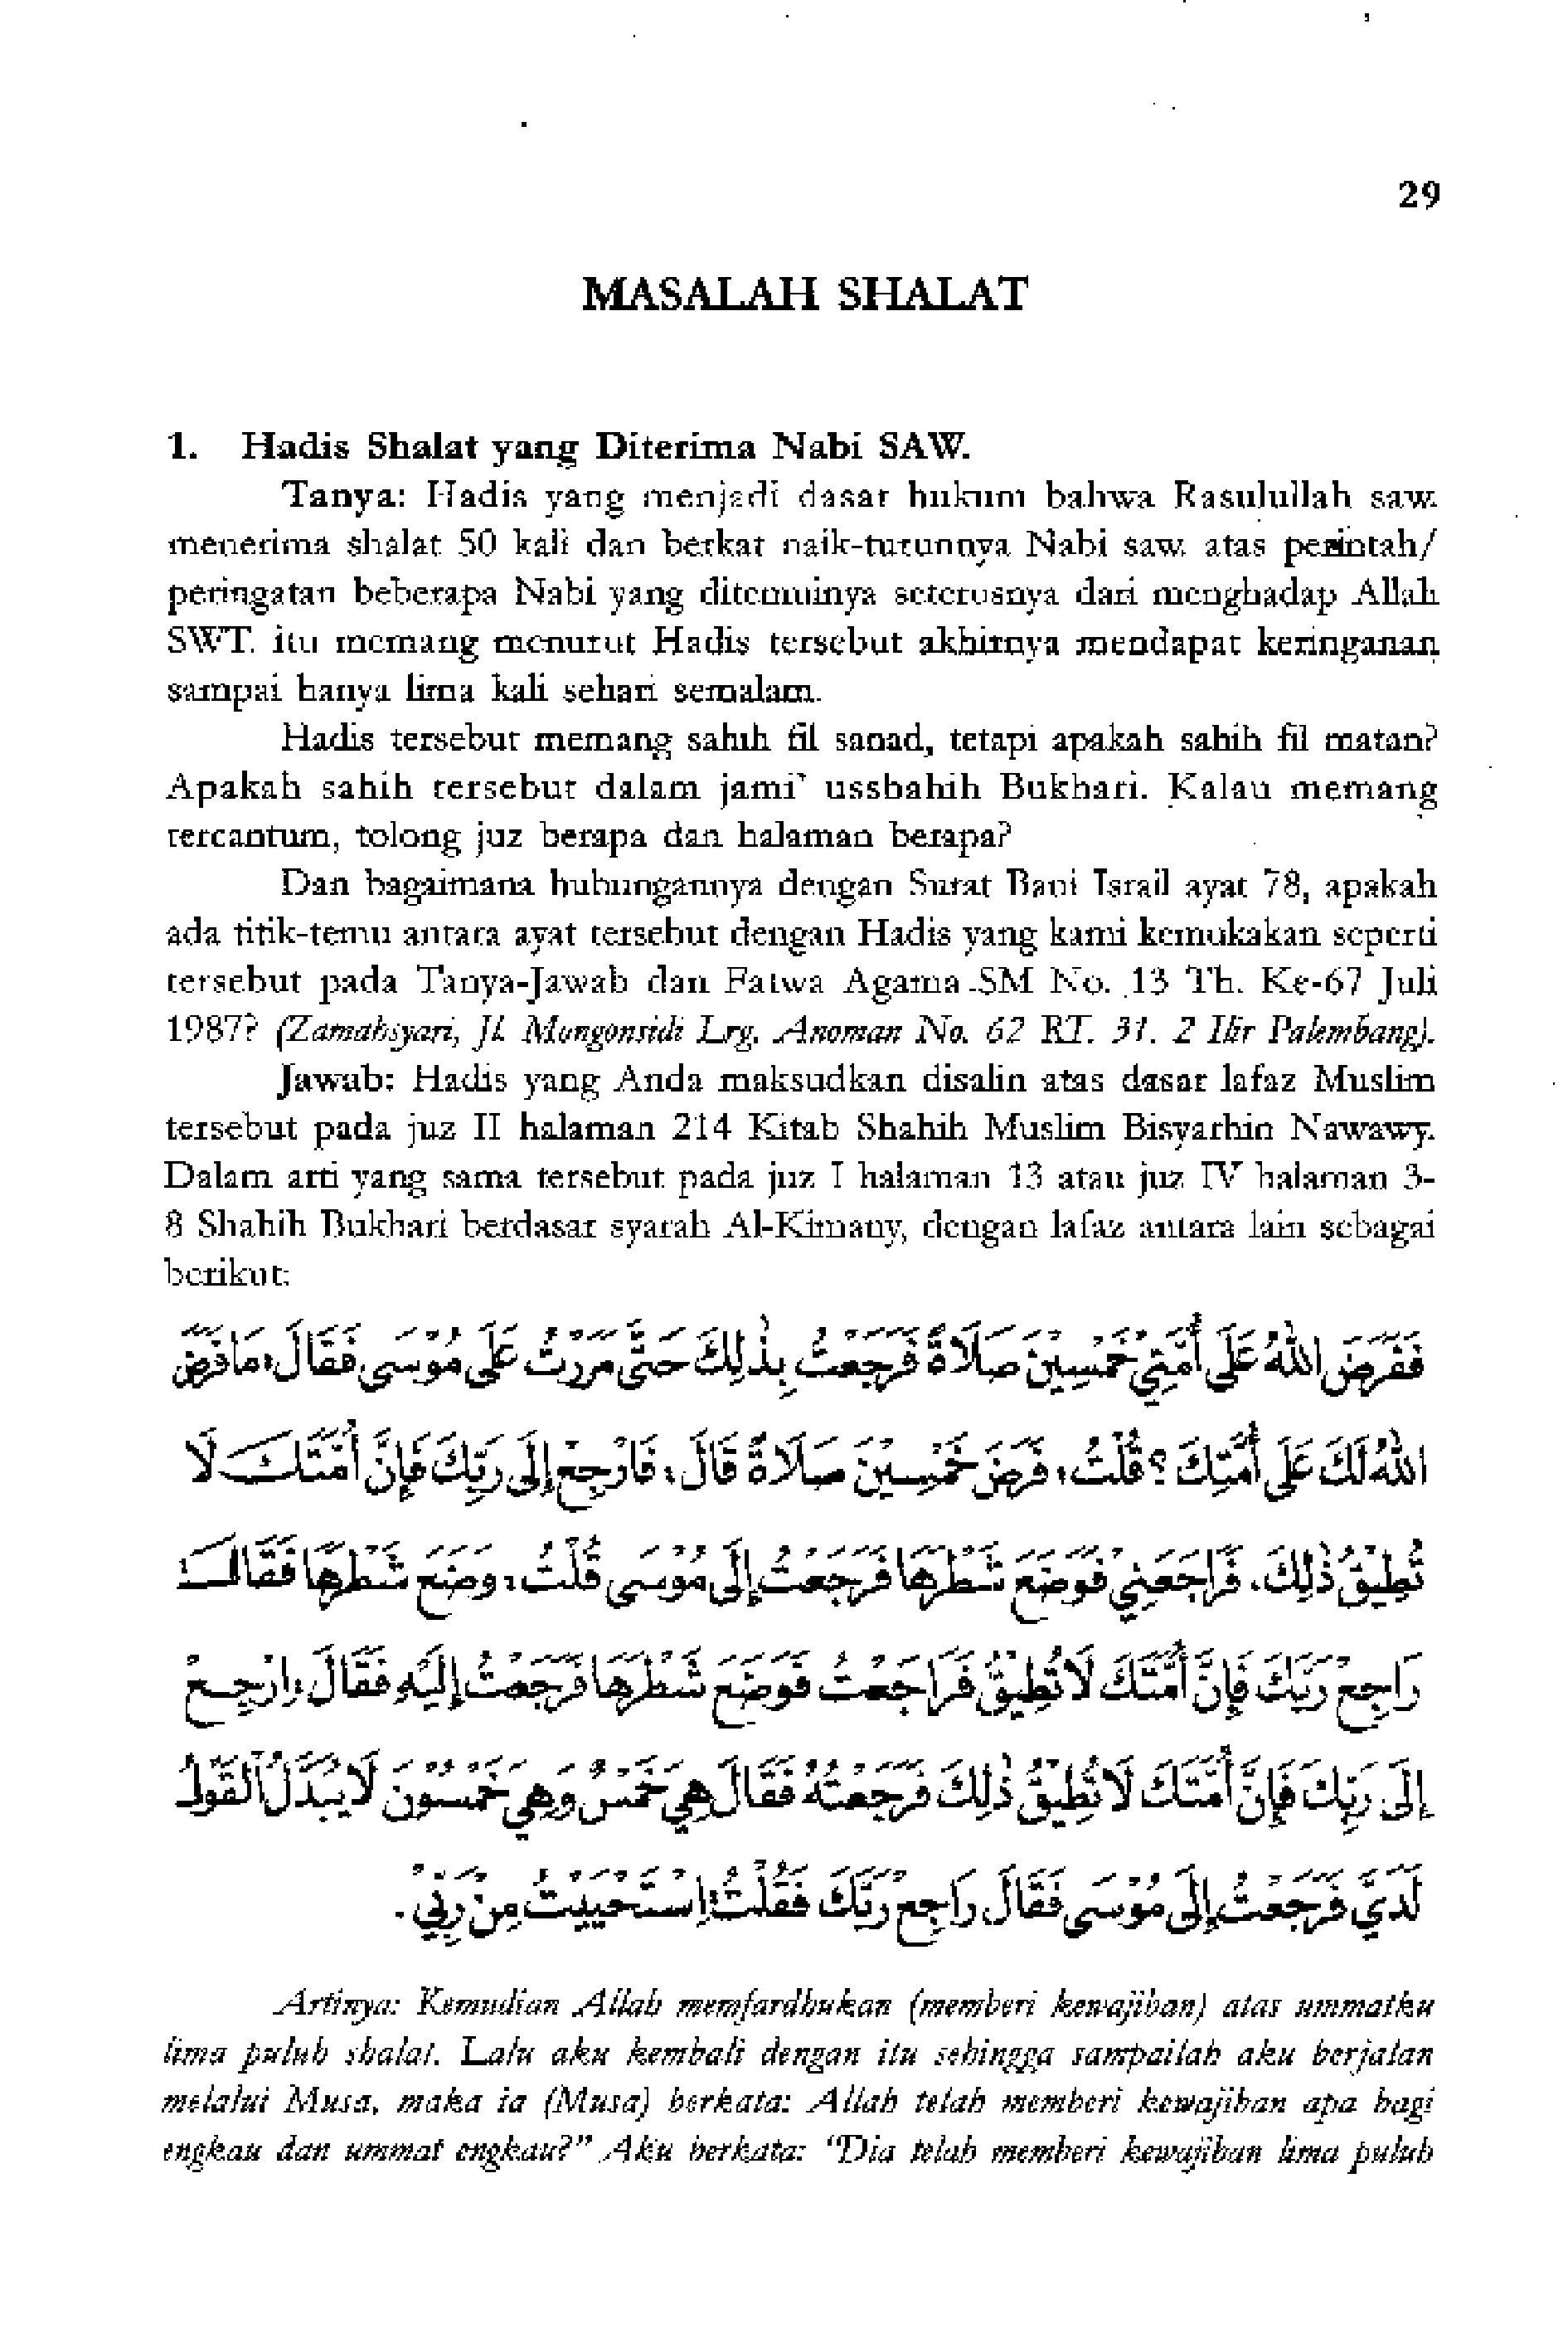 29
MASALAH SHALAT
1. Hadis Shalat yang Diterima Nabi SAW.
Tanya: Hadis yang menjadi dasar hukum bahwa Rasulullah saw.
menerima shalat 50 kali dan berkat naik-turunnya Nabi saw. atas perintah/
peringatan beberapa Nabi yang ditemuinya seterusnya dari menghadap Allah
SWT. itu memang menurut Hadis tersebut akhirnya mendapat keringanan
sampai hanya lima kali sehari semalam.
Hadis tersebut memang sahih fil sanad, tetapi apakah sahih fil matan?
Apakah sahih tersebut dalam jami' usshahih Bukhari. Kalau memang
tercantum, tolong juz berapa dan halaman berapa?
Dan bagaimana hubungannya dengan Surat Bani Israil ayat 78, apakah
ada titik-temu antara ayat tersebut dengan Hadis yang kami kemukakan seperti
tersebut pada Tanya-Jawab dan Fatwa Agama SM No. 13 Th. Ke-67 Juli
1987? (Zamahsyari, Jl. Mongonsidi Lrg. Anoman No. 62 RT. 31. 2 Ilir Palembang).
Jawab: Hadis yang Anda maksudkan disalin atas dasar lafaz Muslim
tersebut pada juz II halaman 214 Kitab Shahih Muslim Bisyarhin Nawawy.
Dalam arti yang sama tersebut pada juz I halaman 13 atau juz IV halaman 3-
8 Shahih Bukhari berdasar syarah Al-Kirmany, dengan lafaz antara lain sebagai
berikut:
فَفَرَضَ اللهُ عَلَى أُمَّتِيْ خَمْسِيْنَ صَلَاةً فَرَجَعْتُ بِذٰلِكَ حَتَّى مَرَرْتُ عَلَى مُوْسَى فَقَالَ، مَا فَرَضَ
اللهُ لَكَ عَلَى أُمَّتِكَ؟ قُلْتُ، فَرَضَ خَمْسِيْنَ صَلَاةً قَالَ، فَارْجِعْ إِلَى رَبِّكَ فَإِنَّ أُمَّتَكَ لَا
تُطِيْقُ ذٰلِكَ. فَرَاجَعَنِيْ فَوَضَعَ شَطْرَهَا فَرَجَعْتُ إِلَى مُوْسَى قُلْتُ، وَضَعَ شَطْرَهَا فَقَالَ
رَاجِعْ رَبَّكَ فَإِنَّ أُمَّتَكَ لَا تُطِيْقُ فَرَاجَعْتُ فَوَضَعَ شَطْرَهَا فَرَجَعْتُ إِلَيْهِ فَقَالَ، ارْجِعْ
إِلَى رَبِّكَ فَإِنَّ أُمَّتَكَ لَا تُطِيْقُ ذٰلِكَ فَرَجَعْتُهُ فَقَالَ هِيَ خَمْسٌ وَهِيَ خَمْسُوْنَ لَا يُبَدَّلُ الْقَوْلُ
لَدَيَّ فَرَجَعْتُ إِلَى مُوْسَى فَقَالَ رَاجِعْ رَبَّكَ فَقُلْتُ اِسْتَحْيَيْتُ مِنْ رَبِّيْ.
Artinya: Kemudian Allah memfardhukan (memberi kewajiban) atas ummatku
lima puluh shalat. Lalu aku kembali dengan itu sehingga sampailah aku berjalan
melalui Musa, maka ia (Musa) berkata: Allah telah memberi kewajiban apa bagi
engkau dan ummat engkau?" Aku berkata: "Dia telah memberi kewajiban lima puluh